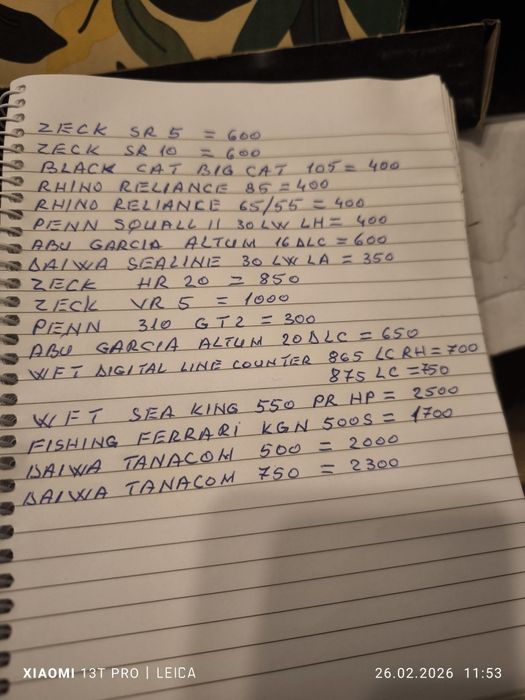 ZECK SR 5 = 600
ZECK SR 10 = 600
BLACK CAT BIG CAT 105 = 400
RHINO RELIANCE 85 = 400
RHINO RELIANCE 65/55 = 400
PENN SQUALL II 30 LW LH = 400
ABU GARCIA ALTUM 16 DLC = 600
DAIWA SEALINE 30 LW LA = 350
ZECK HR 20 = 850
ZECK VR 5 = 1000
PENN 310 GT2 = 300
ABU GARCIA ALTUM 20 DLC = 650
WFT DIGITAL LINE COUNTER 865 LC RH = 700
875 LC = 750
WFT SEA KING 550 PR HP = 2500
FISHING FERRARI KGN 500S = 1700
DAIWA TANACOM 500 = 2000
DAIWA TANACOM 750 = 2300
XIAOMI 13T PRO | LEICA
26.02.2026 11:53